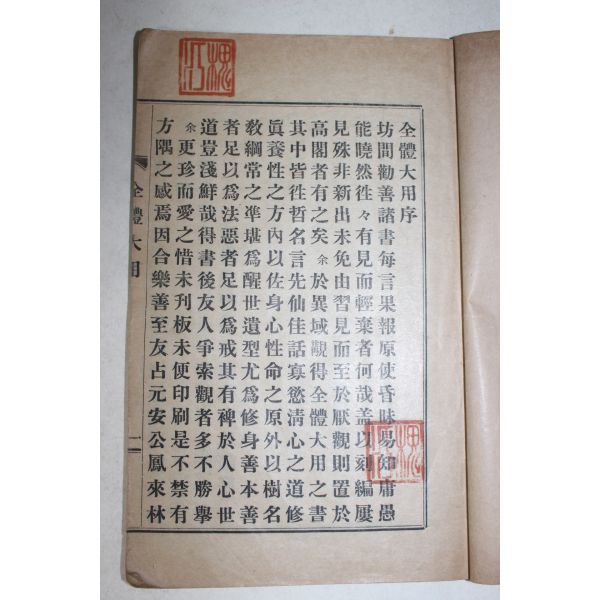 全體大用序
坊間勸善諸書每言果報原使昏昧易知庸愚
能曉然徃々有見而輕棄者何哉盖以刻編屢
見殊非新出未免由習見而至於厭觀則置於
高閣者有之矣余於異域覩得全體大用之書
其中皆徃哲名言先仙佳話寡慾淸心之道修
眞養性之方內以佐身心性命之原外以樹名
敎綱常之準堪爲醒世遺型尤爲修身善本善
者足以爲法惡者足以爲戒其有裨於人心世
道豈淺鮮哉得書後友人爭索觀者多不勝擧
余更珍而愛之惜未刋板未便印刷是不禁有
方隅之感焉因合樂善至友占元安公鳳來林
全體大用
一